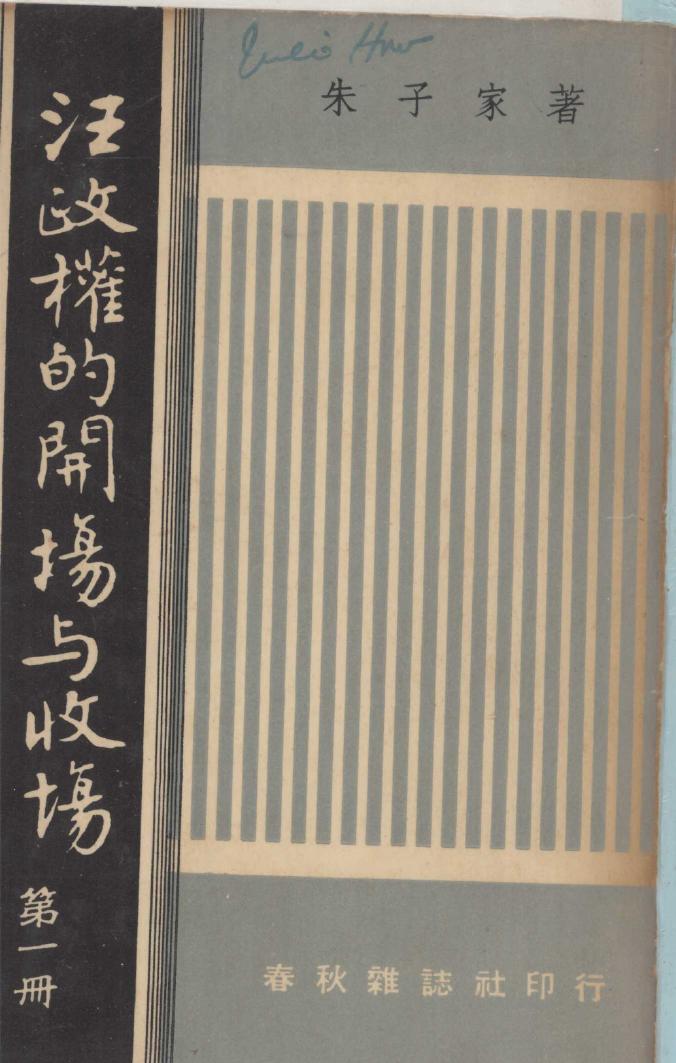 朱子家著
汪政權的開場与收場
第一冊
春秋雜誌社印行